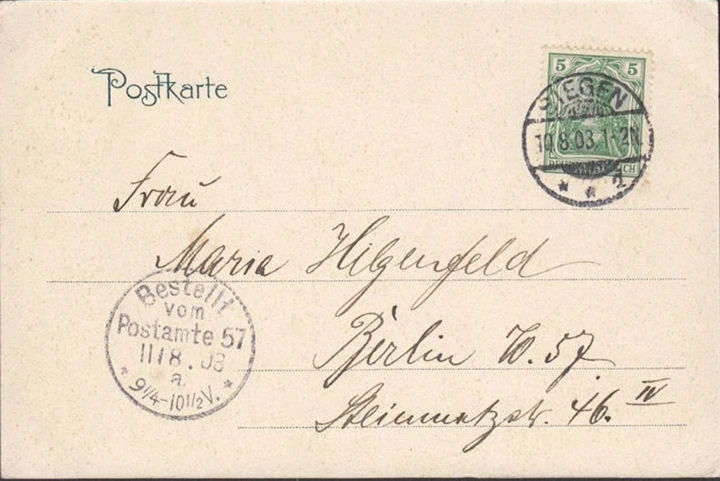 Postkarte
5 5
SIEGEN
10.8.03. 1-2N.
* a 2
Frau
Maria Helgenfeld
Bestellt
vom
Postamte 57
11/8.03
a.
* 9 1/4-10 1/2 V. *
Berlin W. 57
Steinmetzstr. 46. IV